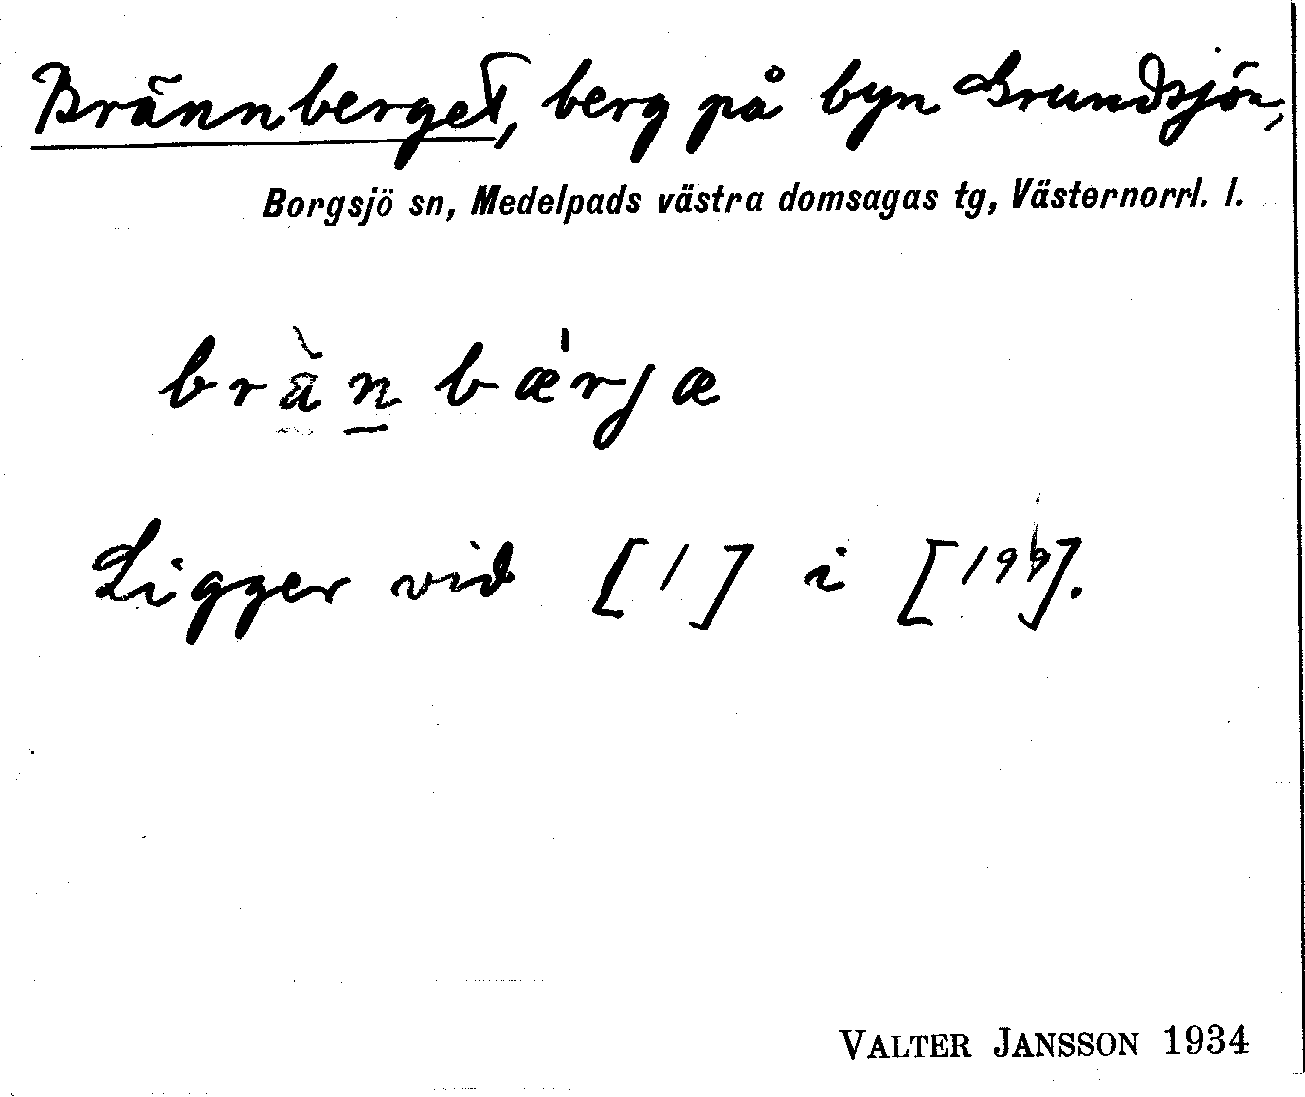 Brännberget, berg på byn Grundsjön,
Borgsjö sn, Medelpads västra domsagas tg, Västernorrl. l.
brä̀n bæ'rjæ
Ligger vid [1] i [199].
VALTER JANSSON 1934